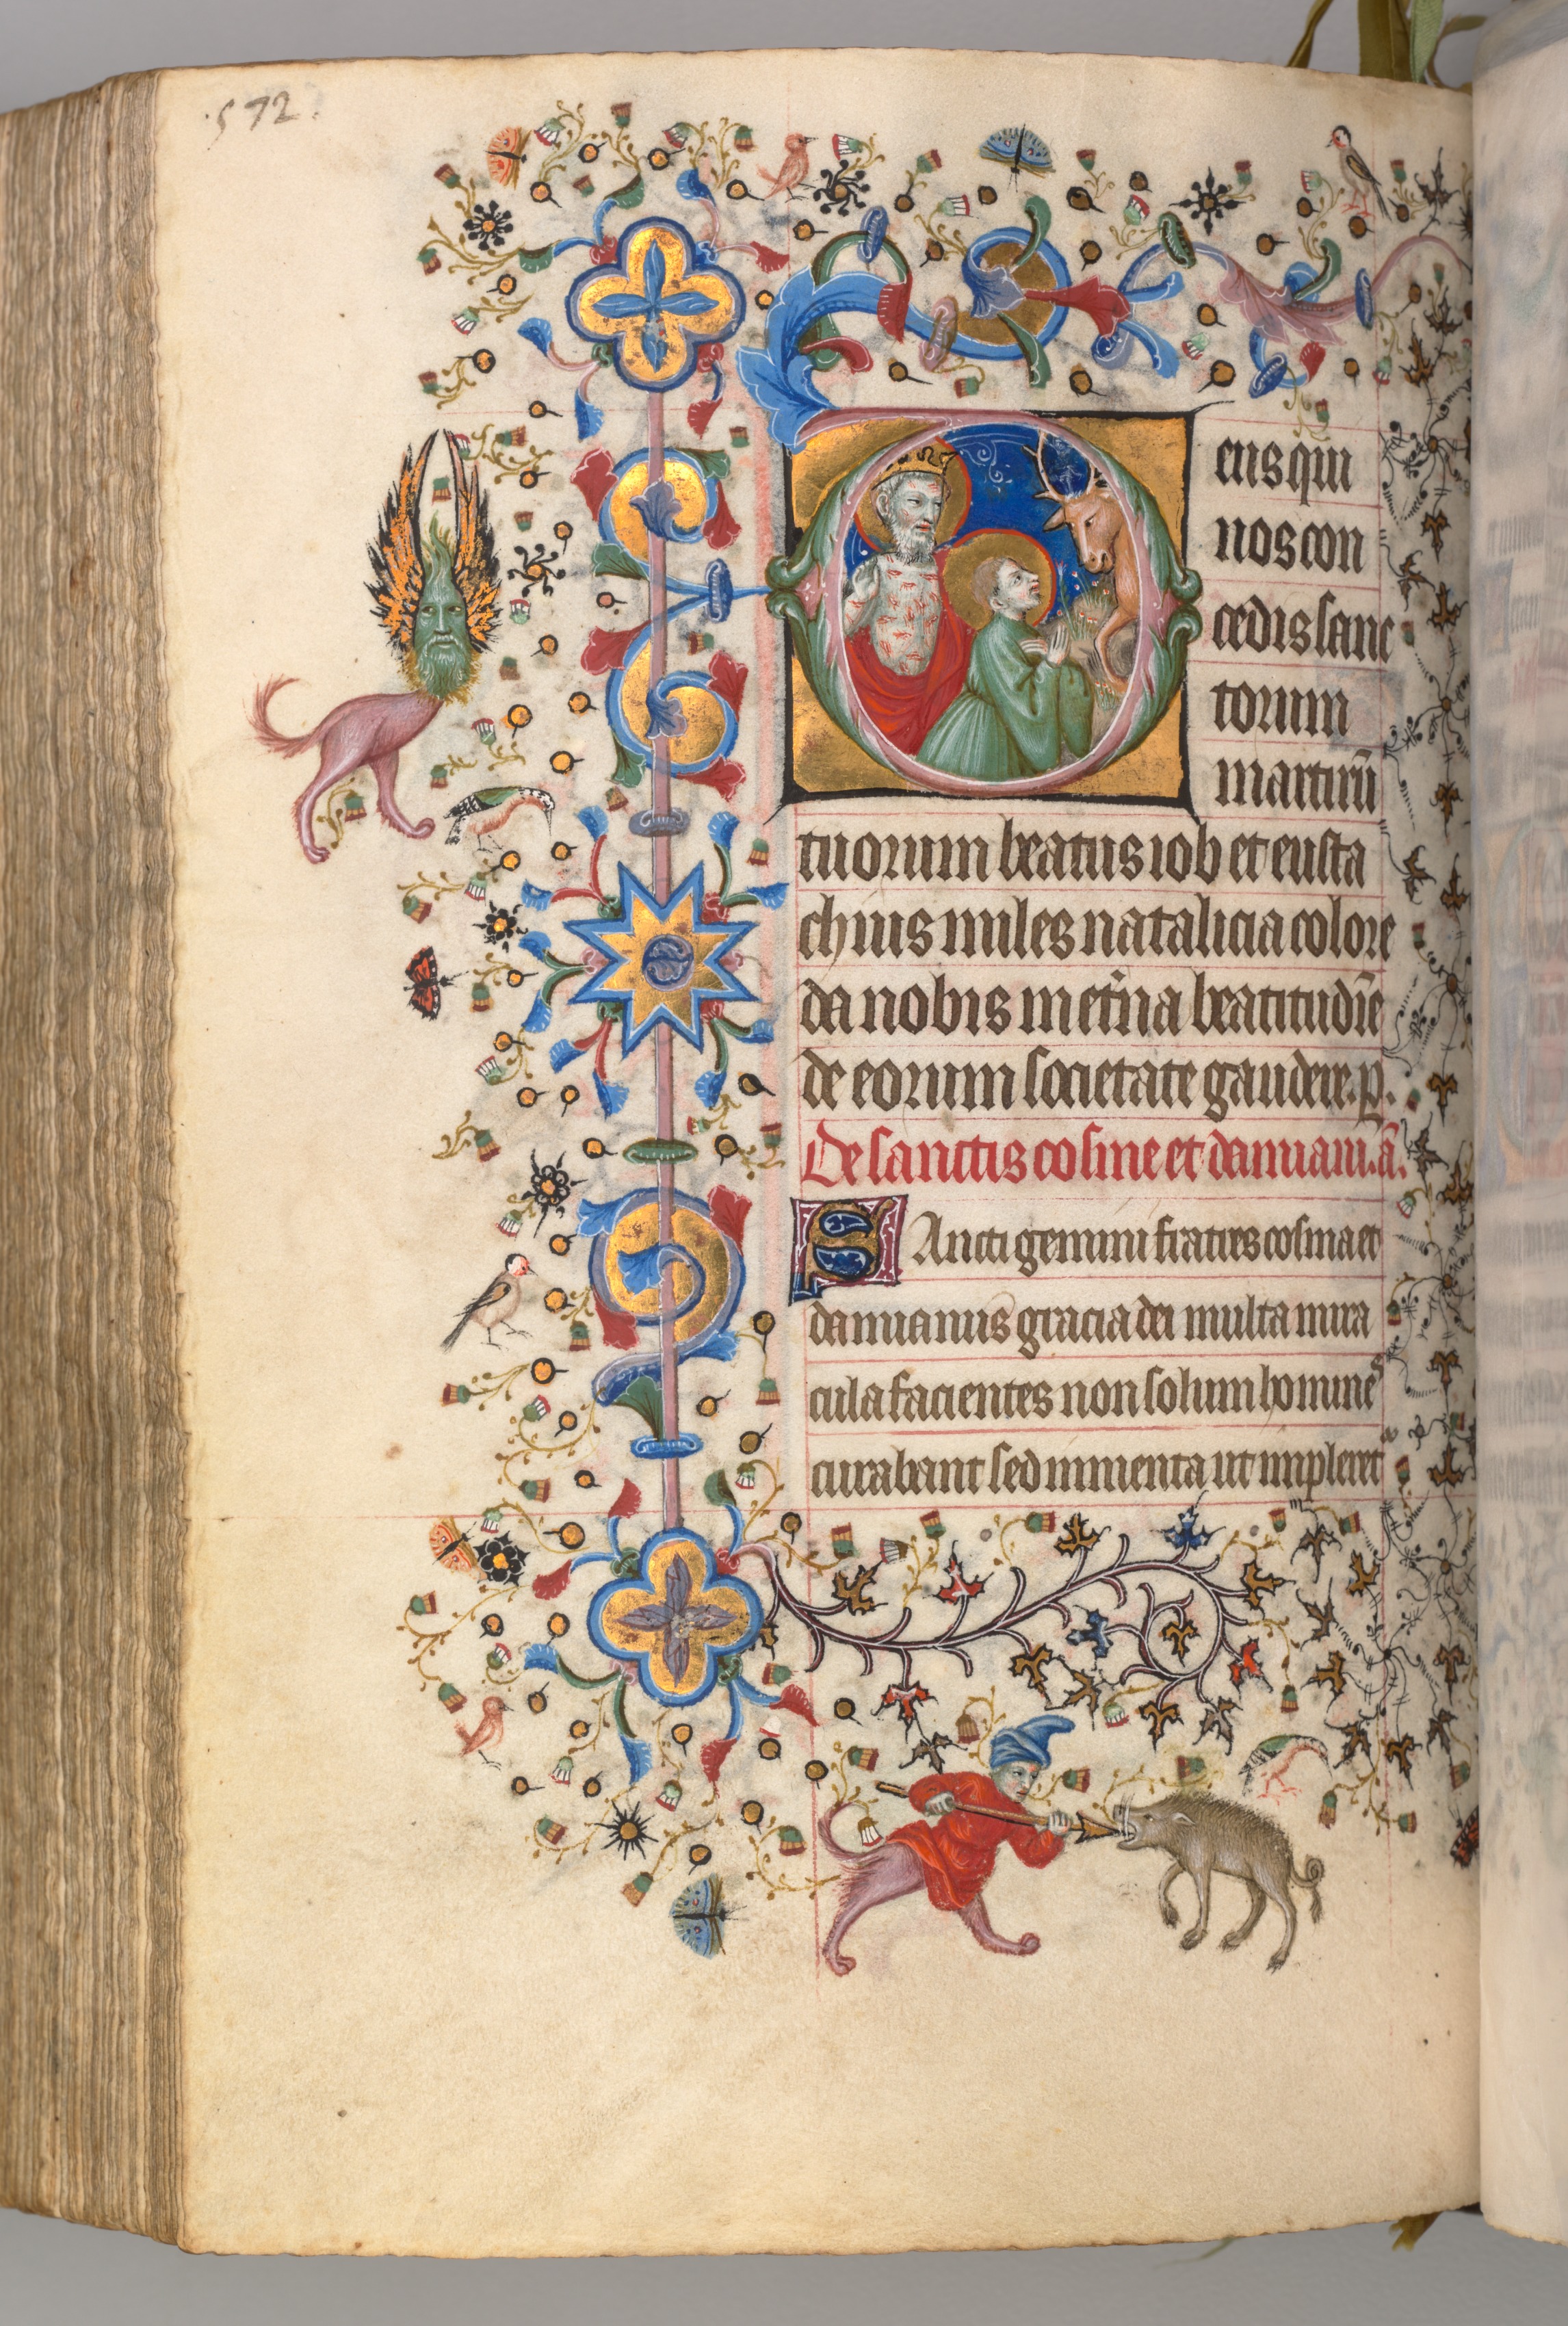 ·572·
Deus qui
nos con
cedis sanc
torum
martirū
tuorum beatus iob et eusta
chius miles natalicia colore
da nobis in et̄na beatitudīe
de eorum societate gaudere. p.
De sanctis cosme et damiani. ā.
SAncti gemini fratres cosma et
damianus gracia dei multa mira
cula facientes non solum homines
curabant sed iumenta ut impleret